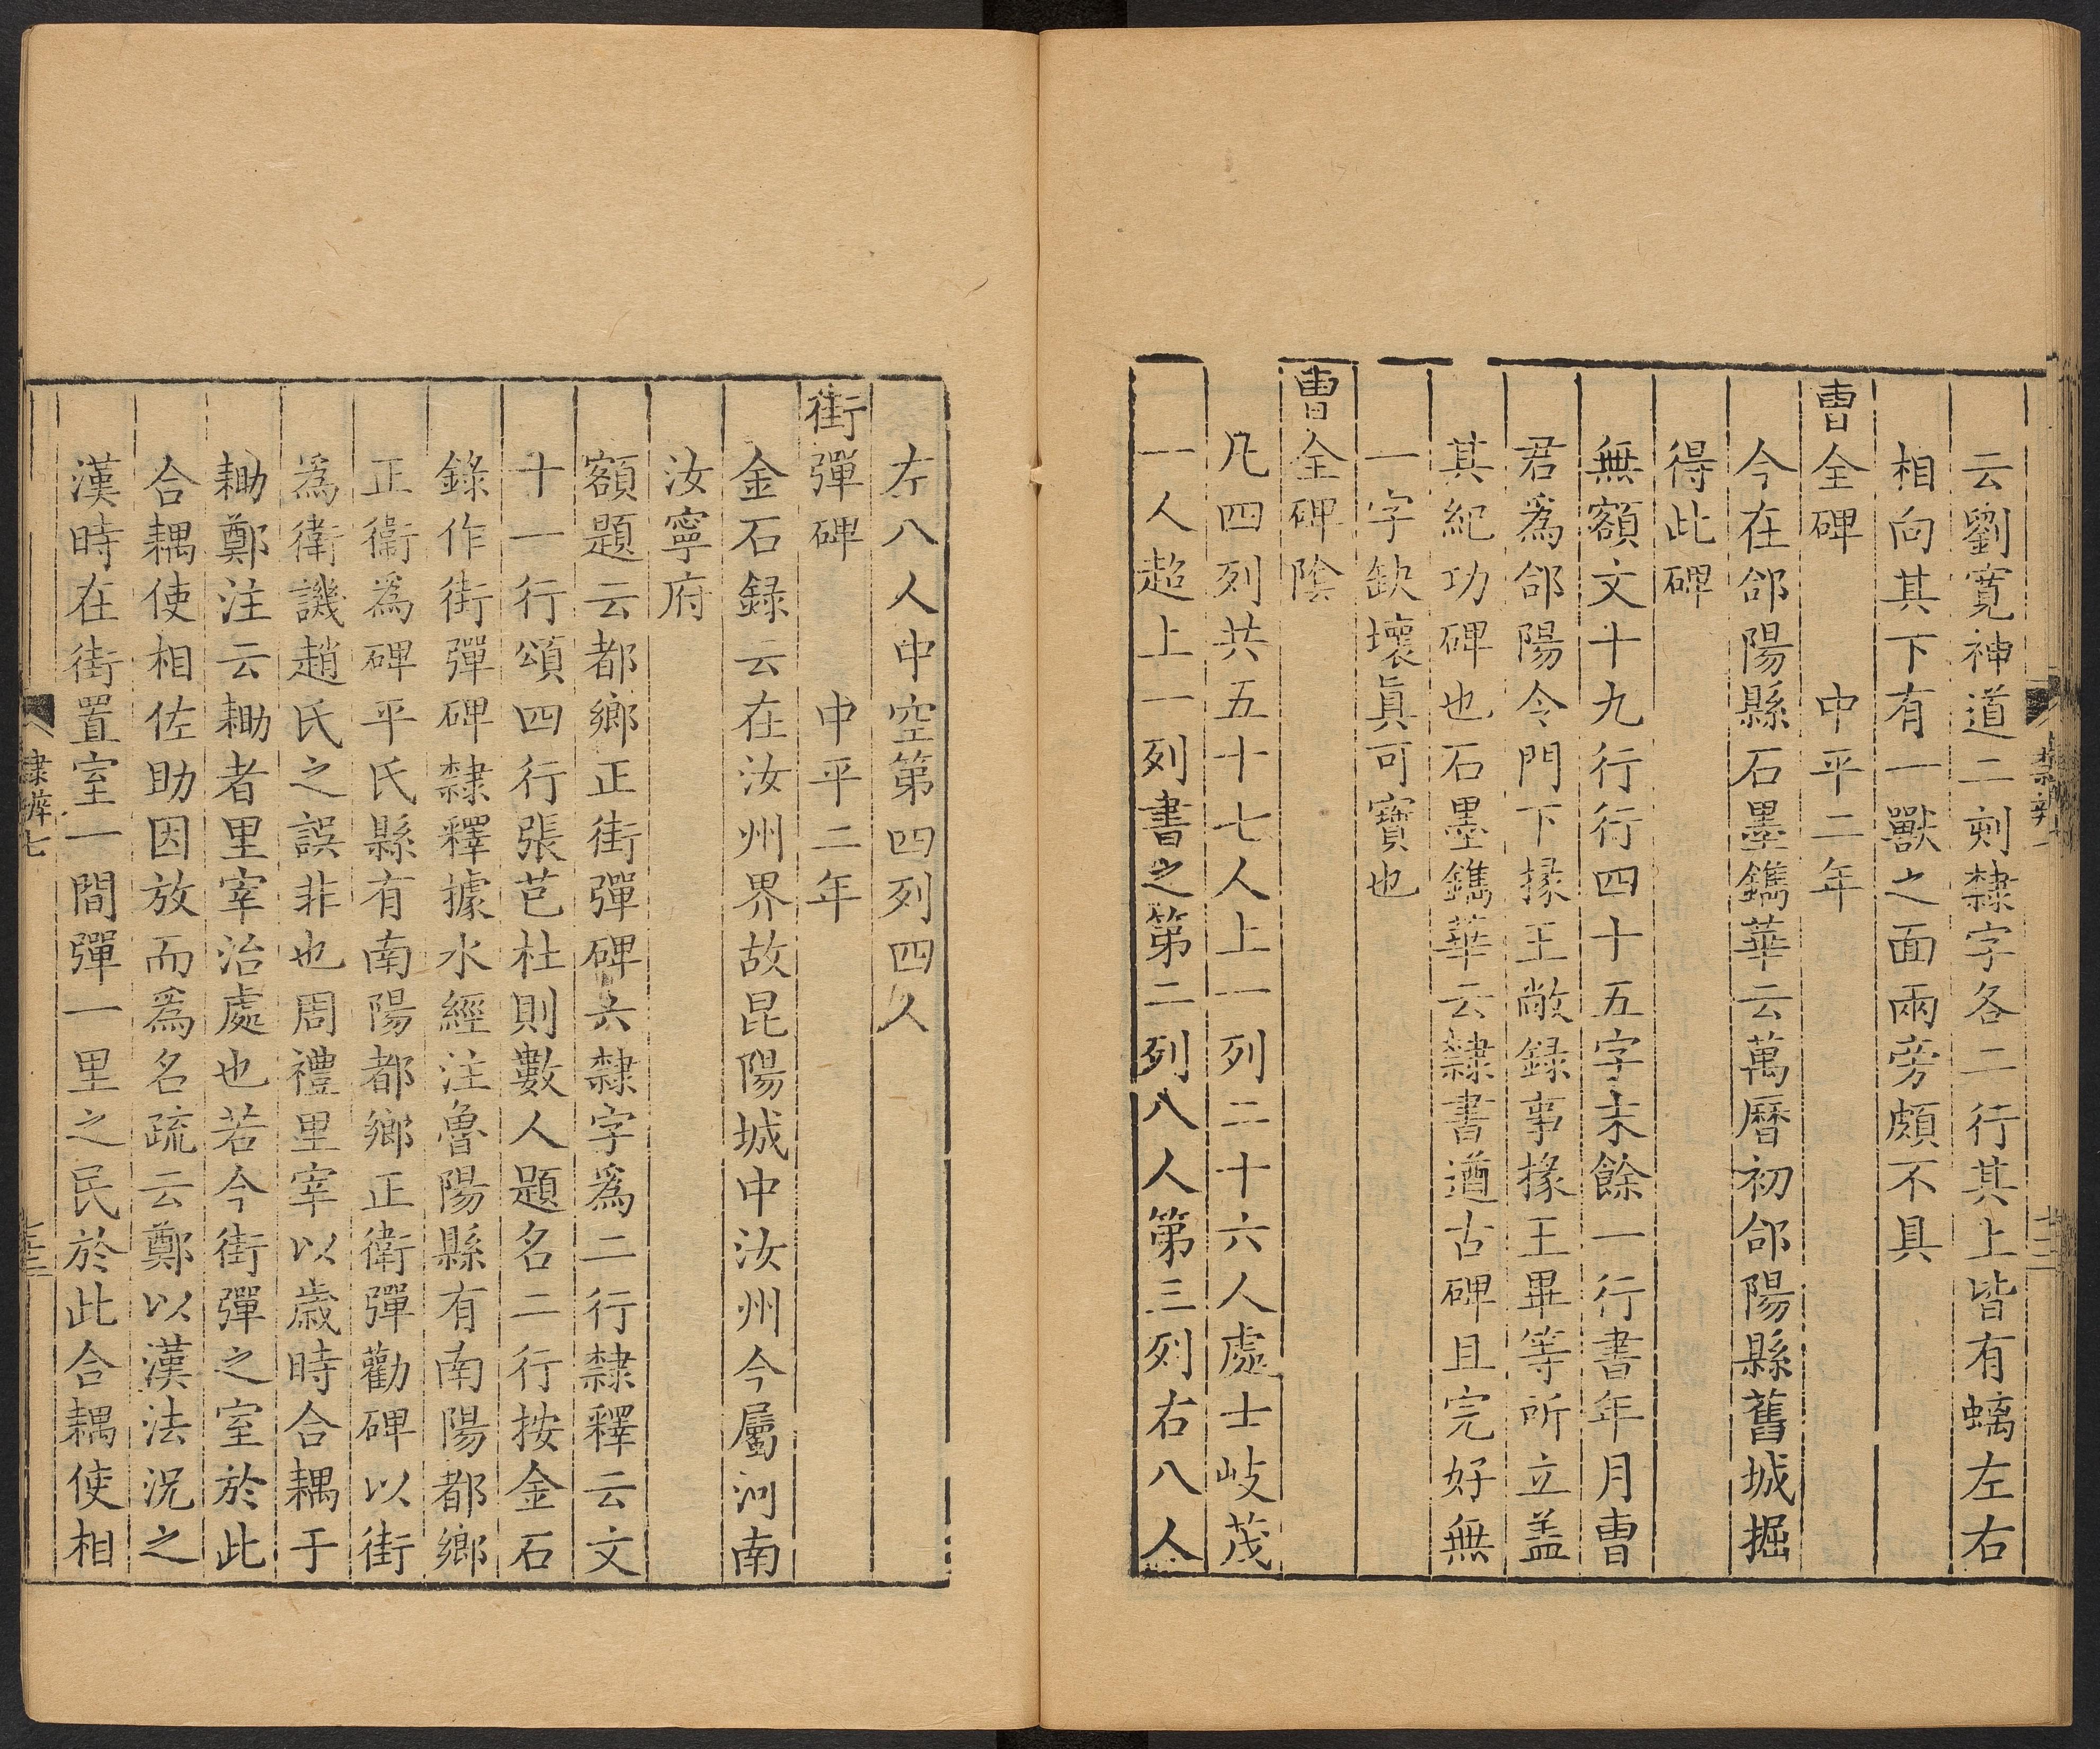 云劉寛神道二刻隸字各二行其上皆有螭左右
相向其下有一獸之面兩旁頗不具
曹全碑 中平二年
今在郃陽縣石墨鐫華云萬曆初郃陽縣舊城掘
得此碑
無額文十九行行四十五字末餘一行書年月曹
君爲郃陽令門下掾王敞録事掾王畢等所立盖
其紀功碑也石墨鐫華云隸書遒古碑且完好無
一字缺壞眞可寶也
曹全碑陰
凡四列共五十七人上一列二十六人處士岐茂
一人超上一列書之第二列八人第三列右八人
左八人中空第四列四人
街彈碑 中平二年
金石録云在汝州界故昆陽城中汝州今屬河南
汝寧府
額題云都鄉正街彈碑六隸字爲二行隸釋云文
十一行頌四行張芭杜則數人題名二行按金石
錄作街彈碑隸釋據水經注魯陽縣有南陽都鄉
正衞爲碑平氏縣有南陽都鄉正衛彈勸碑以街
爲衛譏趙氏之誤非也周禮里宰以歲時合耦于
耡鄭注云耡者里宰治處也若今街彈之室於此
合耦使相佐助因放而爲名疏云鄭以漢法況之
漢時在街置室一間彈一里之民於此合耦使相
隸辨七